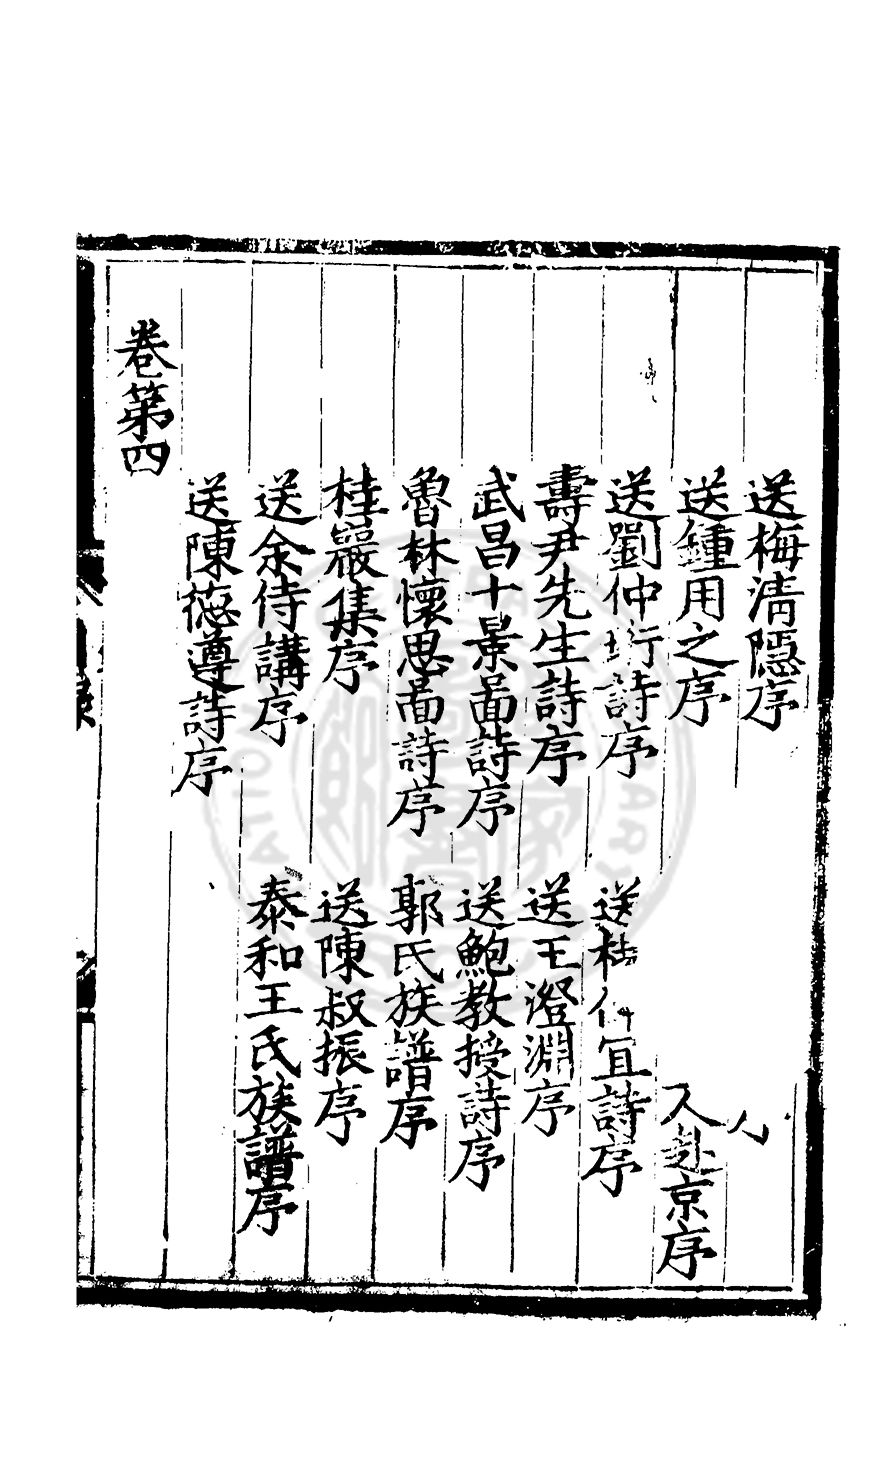 送梅清隠序
送鍾用之序 入赴京序
送劉仲珩詩序 送桂宜詩序
壽尹先生詩序 送王澄淵序
武昌十景啚詩序 送鮑教授詩序
魯林懷思啚詩序 郭氏族譜序
桂巖集序 送陳叔振序
送余侍講序 泰和王氏族譜序
送陳德遵詩序
卷第四